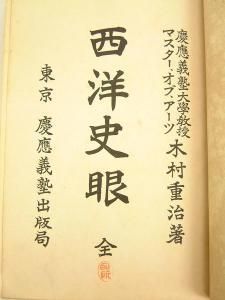 慶應義塾大學教授
マスター・オブ・アーツ
木村重治著
西洋史眼 全
東京 慶應義塾出版局